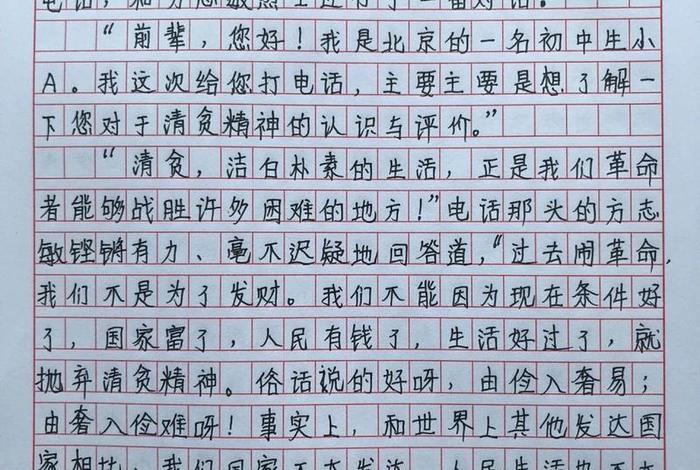 电话，和方志敏烈士进行了一番对话。
“前辈，您好！我是北京的一名初中生小
A。我这次给您打电话，主要主要是想了解一
下您对于清贫精神的认识与评价。”
“清贫，洁白朴素的生活，正是我们革命
者能够战胜许多困难的地方！”电话那头的方志
敏铿锵有力、毫不迟疑地回答道，“过去闹革命，
我们不是为了发财。我们不能因为现在条件好
了，国家富了，人民有钱了，生活好过了，就
抛弃清贫精神。俗话说的好呀，由俭入奢易；
由奢入俭难呀！事实上，和世界上其他发达国
家相比，我们国家不太发达，人民生活也不太